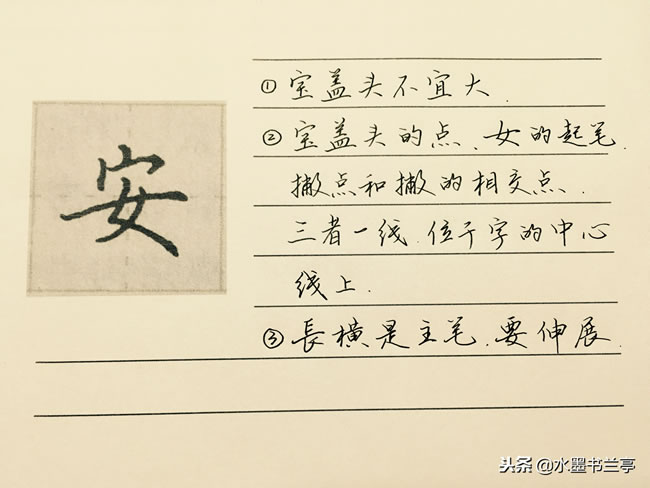 安
①宝盖头不宜大.
②宝盖头的点、女的起笔、
撇点和撇的相交点、
三者一线.位于字的中心
线上.
③長横是主笔.要伸展.
头条@水墨书兰亭